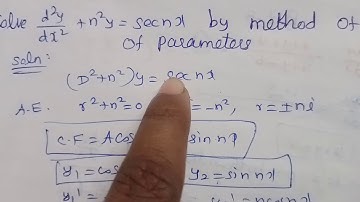 solve d²y/dx² + n²y = sec nx by method of
of parameters
soln:
(D²+n²)y = sec nx
A.E. r²+n²=0 = -n², r = ±ni
C.F = A cos sin nx
y₁ = cos y₂ = sin nx
y₁' =